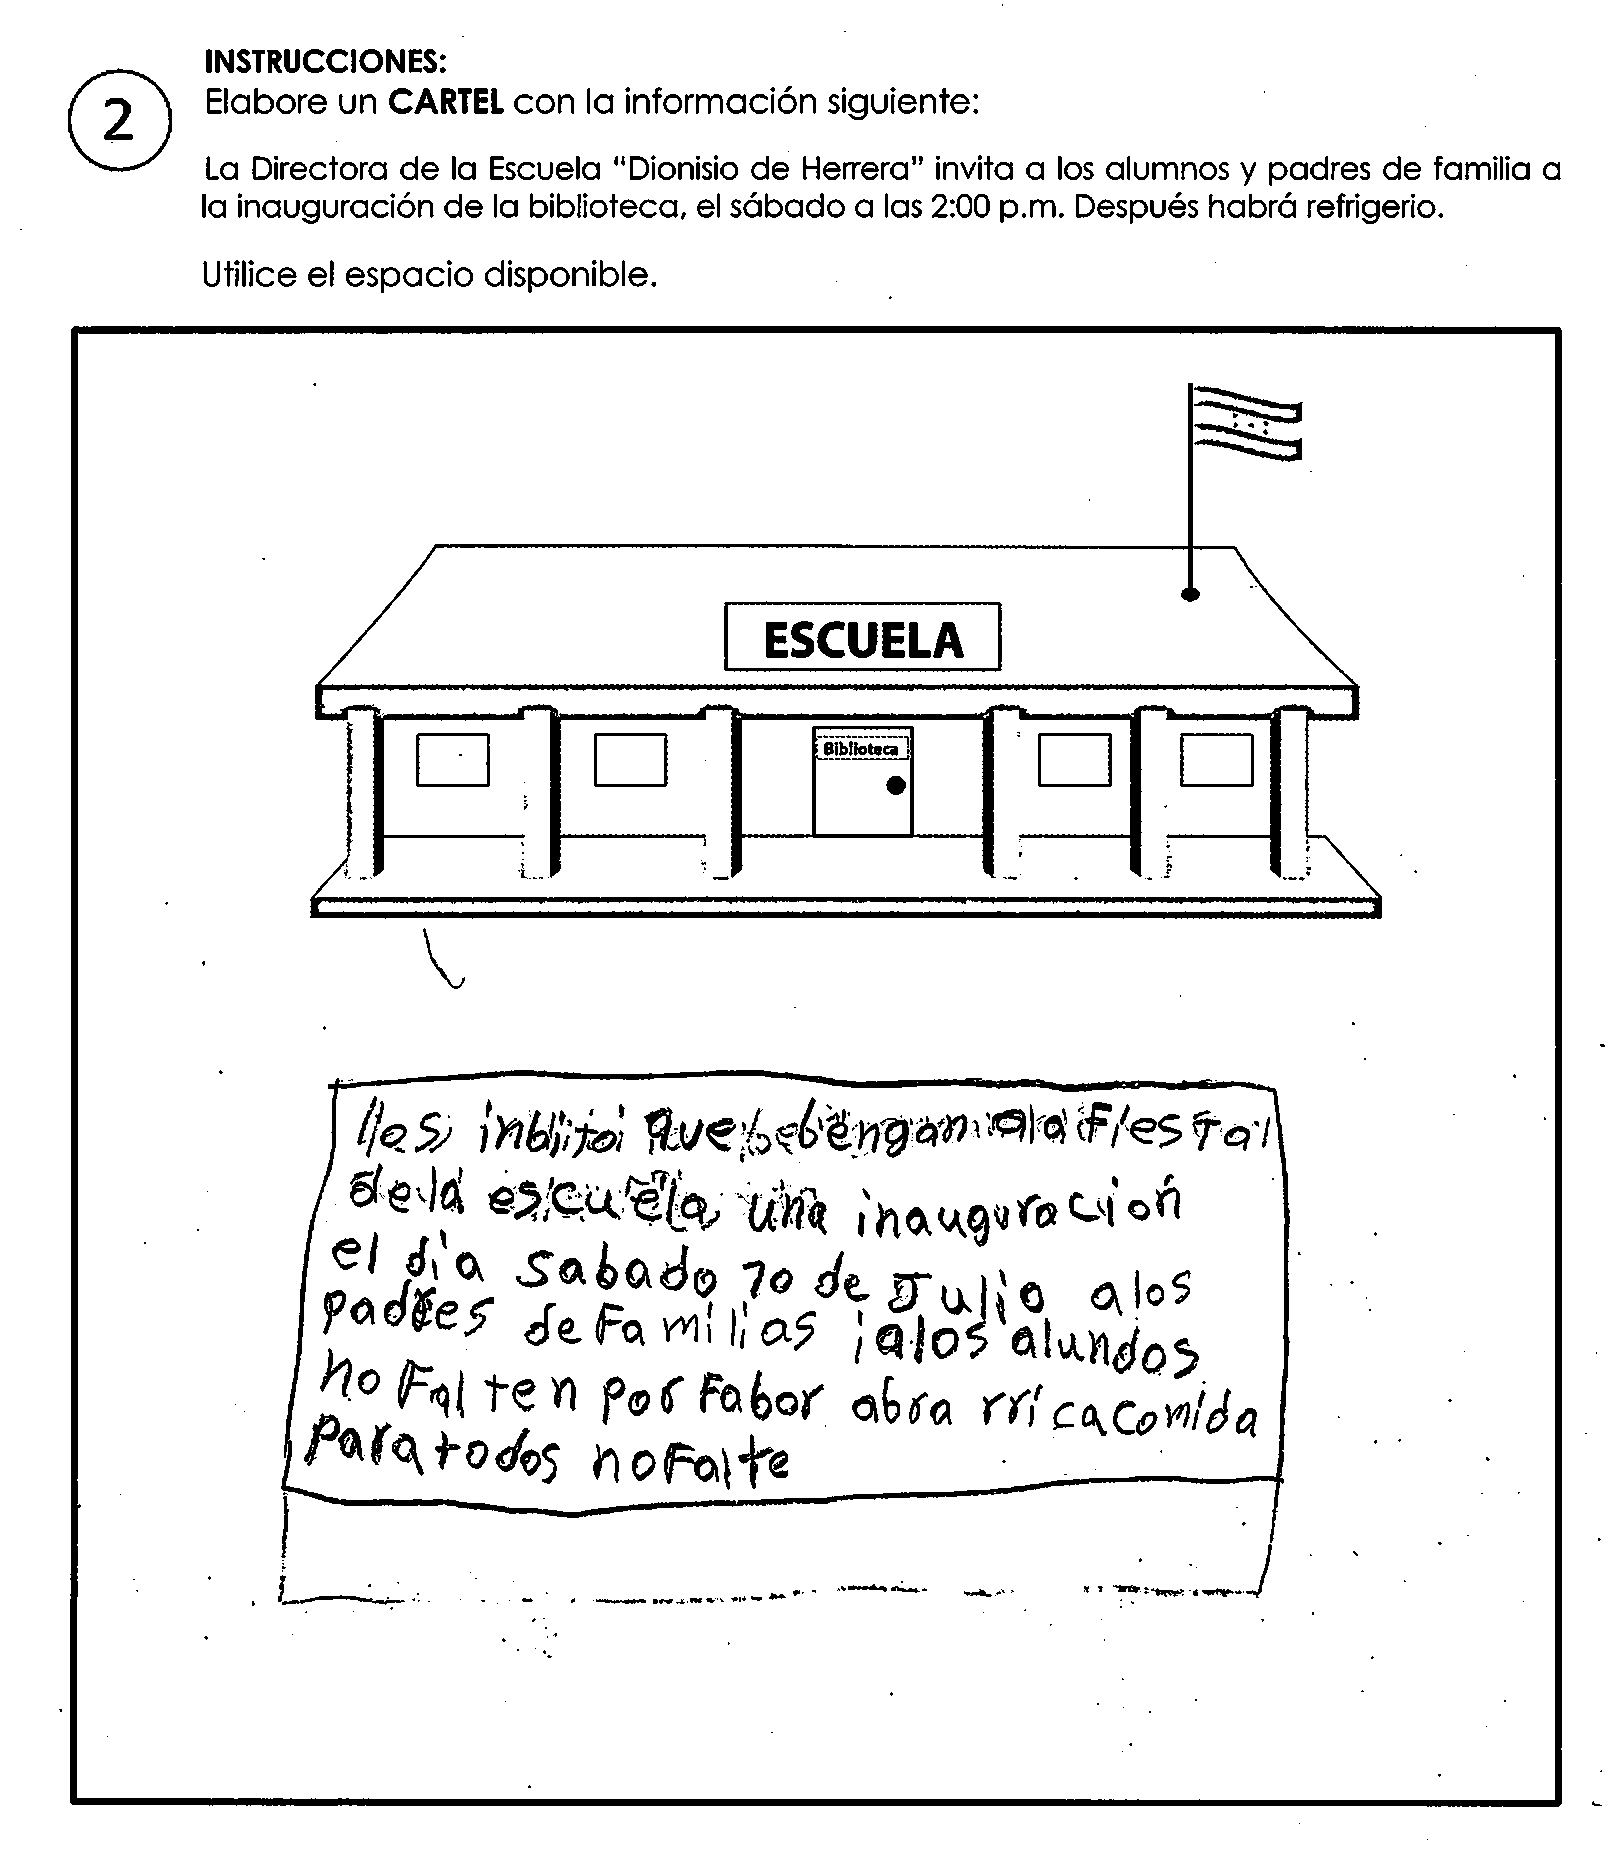 INSTRUCCIONES:
2
Elabore un CARTEL con la información siguiente:
La Directora de la Escuela "Dionisio de Herrera" invita a los alumnos y padres de familia a
la inauguración de la biblioteca, el sábado a las 2:00 p.m. Después habrá refrigerio.
Utilice el espacio disponible.
ESCUELA
Biblioteca
los inbito que bengan ala fiesta
de la escuela una inauguracion
el dia sabado 10 de Julio alos
padres de familias i alos alundos
no falten por fabor abra rrica comida
para todos no falte